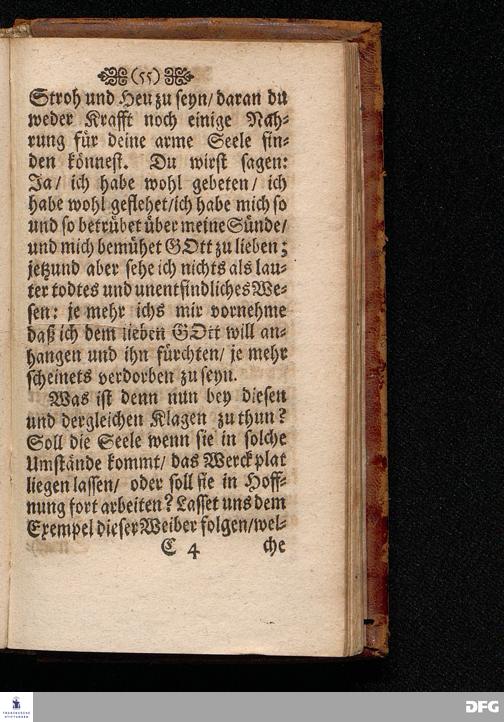 (55)
Stroh und Heu zu seyn/ daran du
weder Krafft noch einige Nah-
rung für deine arme Seele fin-
den könnest. Du wirst sagen:
Ja/ ich habe wohl gebeten/ ich
habe wohl geflehet/ ich habe mich so
und so betrübet über meine Sünde/
und mich bemühet GOtt zu lieben;
jetzund aber sehe ich nichts als lau-
ter todtes und unentfindliches We-
sen: je mehr ichs mir vornehme
daß ich dem lieben GOtt will an-
hangen und ihn fürchten/ je mehr
scheinets verdorben zu seyn.
Was ist denn nun bey diesen
und dergleichen Klagen zu thun?
Soll die Seele wenn sie in solche
Umstände kommt/ das Werck plat
liegen lassen/ oder soll sie in Hoff-
nung fort arbeiten? Lasset uns dem
Exempel dieser Weiber folgen/ wel-
C 4 che
FRANCKESCHE STIFTUNGEN
DFG